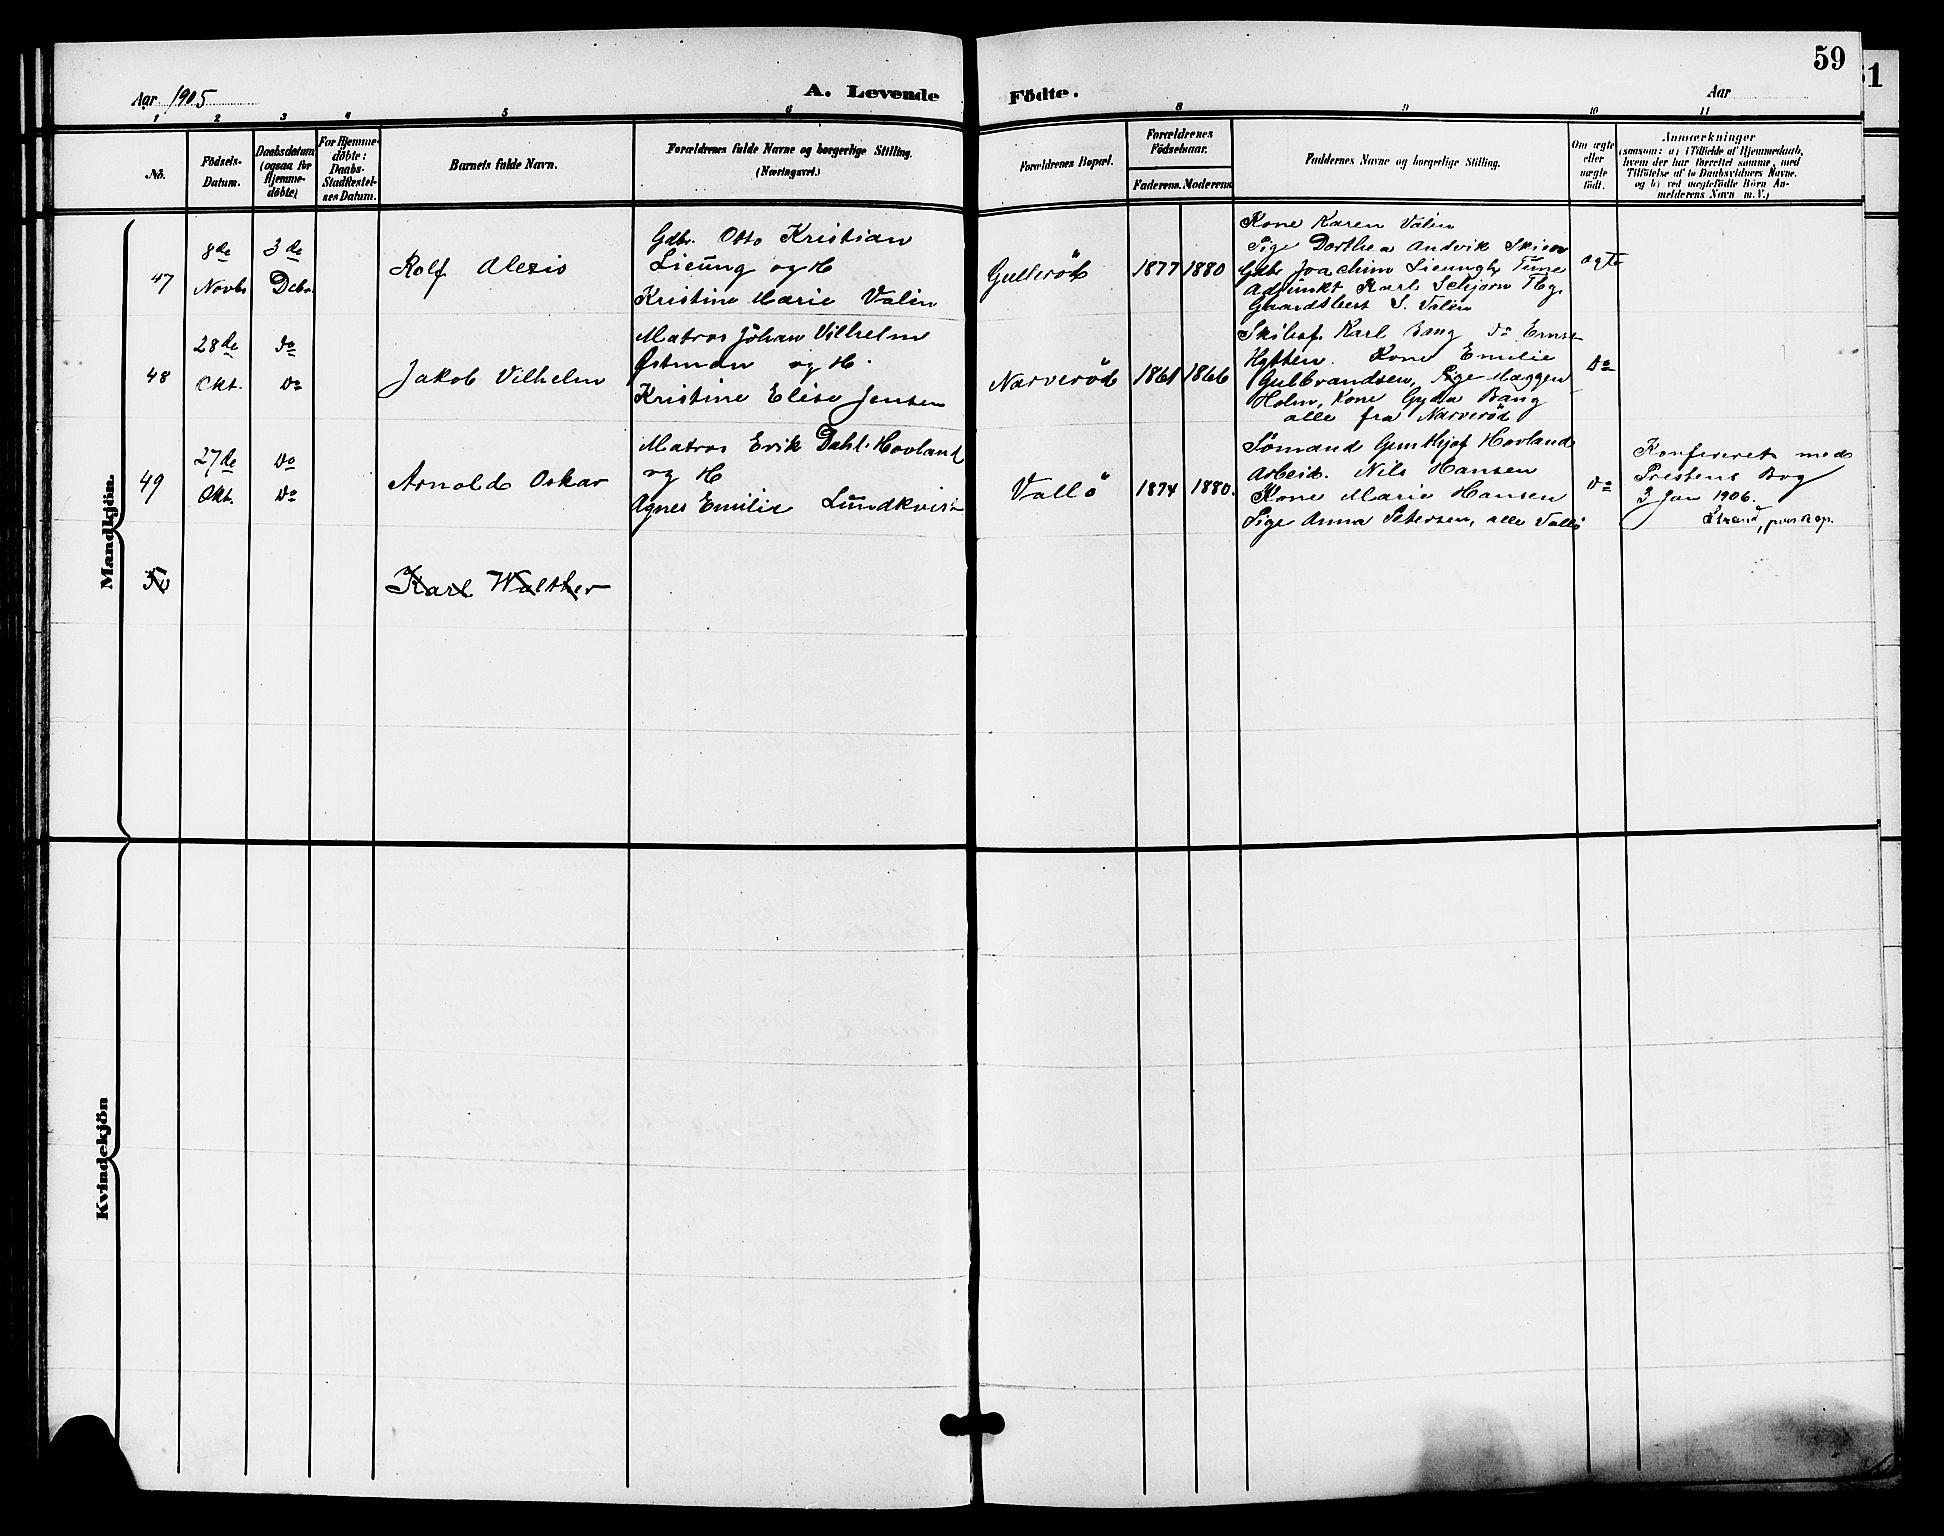 59
61
Aar 1905
A. Levende
Födte.
Aar
1 2 3 4 5 6 8 9 10 11
No.
Födsels-
Datum.
Daabsdatum
(ogsaa for
Hjemme-
döbte)
For Hjemme-
døbte:
Daabs-
Stadfæstel-
ses Datum.
Barnets fulde Navn.
Forældrenes fulde Navne og borgerlige Stilling.
(Næringsvei.)
Forældrenes Bopæl.
Forældrenes
Födselsaar.
Faderens. Moderens.
Faddernes Navne og borgerlige Stilling.
Om ægte
eller
uægte
födt.
Anmærkninger
(saasom: a) i Tilfælde af Hjemmedaab,
hvem der har forrettet samme, med
Tilföielse af to Daabsvidners Navne.
og b) ved uægtefödte Börn An-
melderens Navn m. V.)
Mandkjön.
47
8de
Novb.
3de
Debr.
Rolf Alexis
Gdbr. Otto Kristian
Lieung og H
Kristine Marie Valin
Gulleröd
1877 1880
Kone Karen Valin
Pige Dorthea Andvik Skien
Gdbr Joachim Lieungh
Adjunkt Karl Schjørn Tbg.
Gaardsbest S. Valin
ægte
48
28de
Okt.
do
do
Jakob Vilhelm
Matros Johan Vilhelm
Østman og H.
Kristine Elise Jensen
Narveröd
1861 1866
Karl Bang do
Kone Emilie
Gulbrandsen, Pige Maggen
Holm, Kone Gyda Bang
alle fra Narveröd
do
49
27de
Okt.
do
do
Arnold Oskar
Matros Erik Dahl-Hovland
og H
Agnes Emilie Lundkvist
Vallö
1874 1880.
Sömand Hovland
Arbeid. Nils Hansen
Kone Marie Hansen
Pige Anna Petersen, alle Vallö
do
Konfereret med
Prestens Bog
3 Jan 1906.
Strand, pers. kap.
50
Karl Walther
Kvindekjön